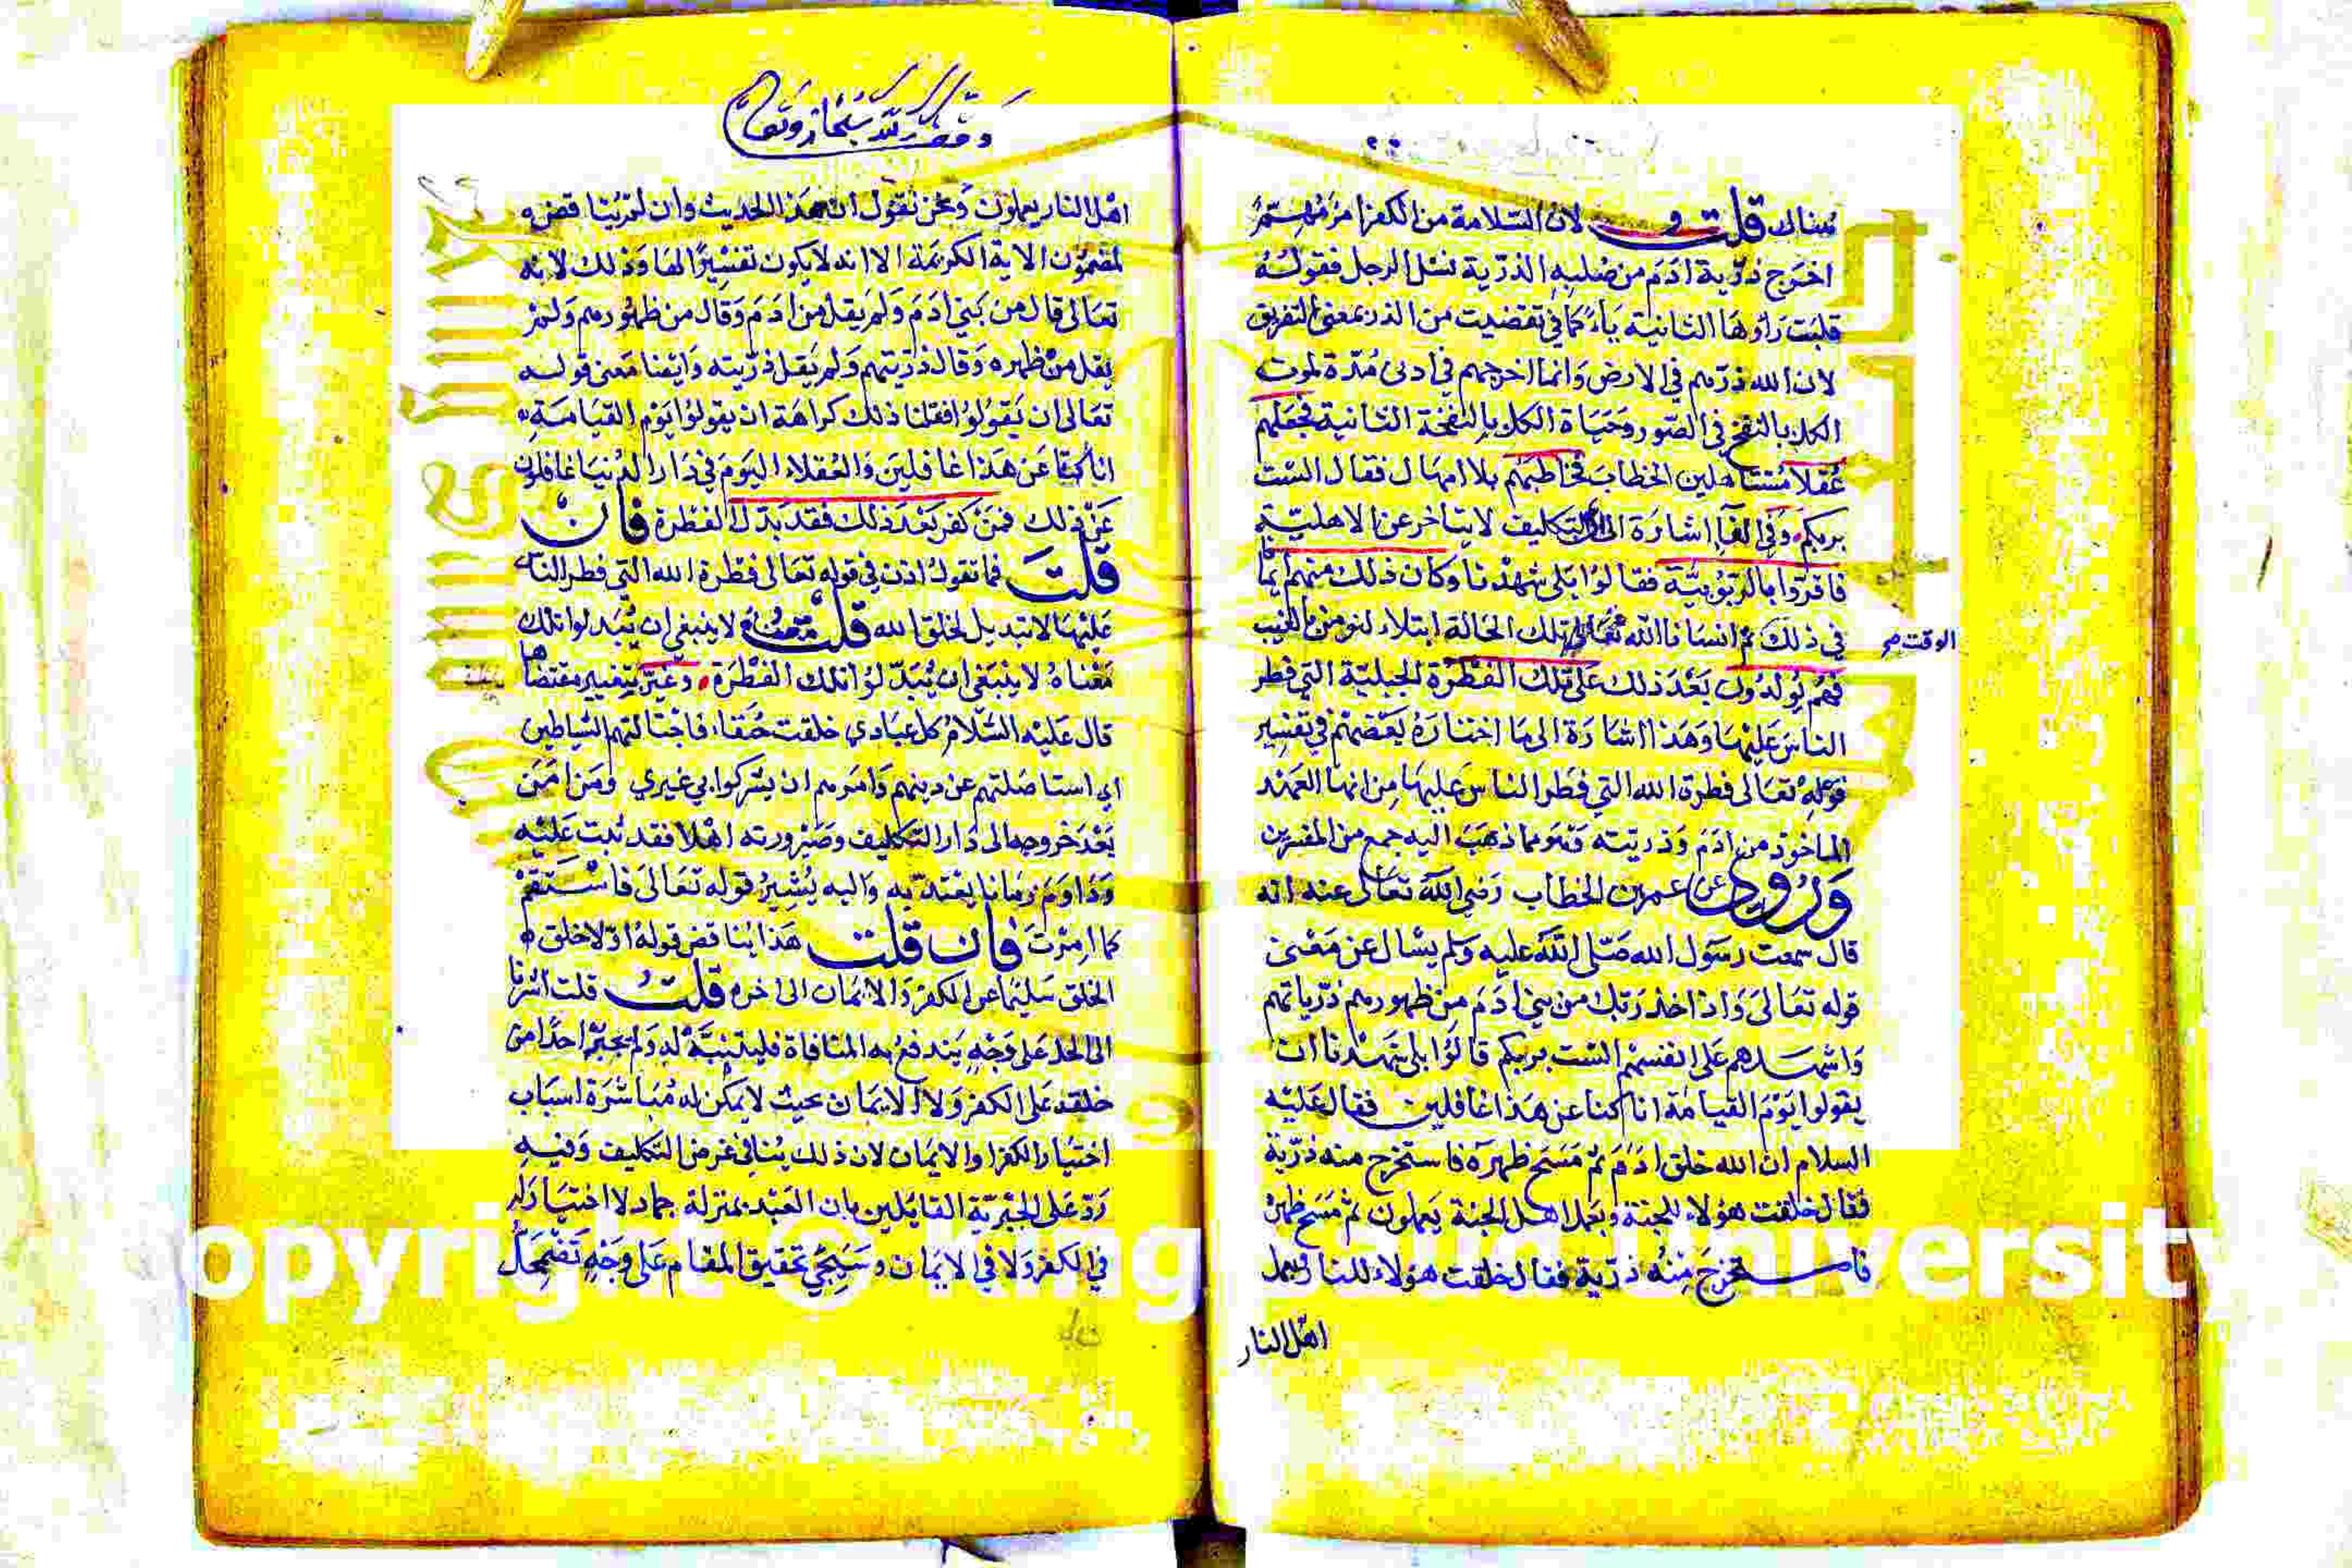 يناك قلت و لان السلامة من الكفر امر مهستمر
اخرج ذرية ادم من صلبه الذرية نسل الرجل فقولسه
قلبت راؤها الثانية ياء كما في تقضيت من الذر بمعنى التفريق
لان الله ذرهم في الارض وانما اخرجهم في ادنى مدة لموت
الكل بالنفخ في الصور وحياة الكل بالنفخة الثانية فجعلهم
عقلا مستاهلين الخطاب فخاطبهم بلا امهال فقال الست
بربكم وفي الفا اشارة الى ان التكليف لا يتاخر عن الاهلية
فاقروا بالربوبية فقالوا بلى شهدنا وكان ذلك منهم ايمانا
في ذلك ثم انسانا الله تعالى تلك الحالة ابتلاء لنومن بالغيب
الوقت صح
فهم يولدون بعد ذلك على تلك الفطرة الجبلية التي فطر
الناس عليها وهذا اشارة الى ما اختاره بعضهم في تفسير
قوله تعالى فطرة الله التي فطر الناس عليها من انها العهد
الماخوذ من ادم وذريته وهو مما ذهب اليه جمع من المفسرين
وروي عن عمر بن الخطاب رضي الله تعالى عنه انه
قال سمعت رسول الله صلى الله عليه وسلم يسال عن معنى
قوله تعالى واذ اخذ ربك من بني ادم من ظهورهم ذرياتهم
واشهدهم على انفسهم الست بربكم قالوا بلى شهدنا ان
يقولوا يوم القيامة انا كنا عن هذا غافلين فقال عليه
السلام ان الله خلق ادم ثم مسح ظهره فاستخرج منه ذرية
فقال خلقت هؤلاء للجنة وبعمل اهل الجنة يعملون ثم مسح ظهره
فاستخرج منه ذرية فقال خلقت هؤلاء للنار وبعمل
اهل النار
وقف لله سبحانه وتعالى
اهل النار يعملون ونحن نقول ان هذا الحديث وان لم يناقض
لمضمون الاية الكريمة الا انه لا يكون تفسيرا لها وذلك لانه
تعالى قال من بني ادم ولم يقل من ادم وقال من ظهورهم ولم
يقل من ظهره وقال ذريتهم ولم يقل ذريته وايضا معنى قوله
تعالى ان يقولوا فعلنا ذلك كراهة ان يقولوا يوم القيامة
انا كنا عن هذا غافلين والعقلاء اليوم في دار الدنيا غافلون
عن ذلك فمن كفر بعد ذلك فقد بدل الفطرة فان
قلت فما تقول اذن في قوله تعالى فطرة الله التي فطر الناس
عليها لا تبديل لخلق الله قلت معناه لا ينبغي ان يبدلوا تلك
معناه لا ينبغي ان يبدلوا تلك الفطرة وغير بتغيير مقتضاها
قال عليه السلام كل عبادي خلقت حنفا فاجتالتهم الشياطين
اي استاصلتهم عن دينهم وامرهم ان يشركوا بي غيري ومن امن
بعد خروجه الى دار التكليف وصيرورته اهلا فقد ثبت عليه
وداوم زمانا يعتد به واليه يشير قوله تعالى فاستقم
كما امرت فان قلت هذا يناقض قوله اولا خلق
الخلق سليما عن الكفر والايمان الى اخره قلت قلت اشرنا
الى الحل على وجه يندفع به المنافاة فليتنبه له ولم يجبر احدا من
خلقه على الكفر ولا الايمان بحيث لا يمكن له مباشرة اسباب
اختيار الكفر او الايمان لان ذلك ينافي غرض التكليف وفيه
رد على الجبرية القائلين بان العبد بمنزلة جماد لا اختيار له
في الكفر ولا في الايمان وسيجي تحقيق المقام على وجه تضمحل
opyright © King Saud University